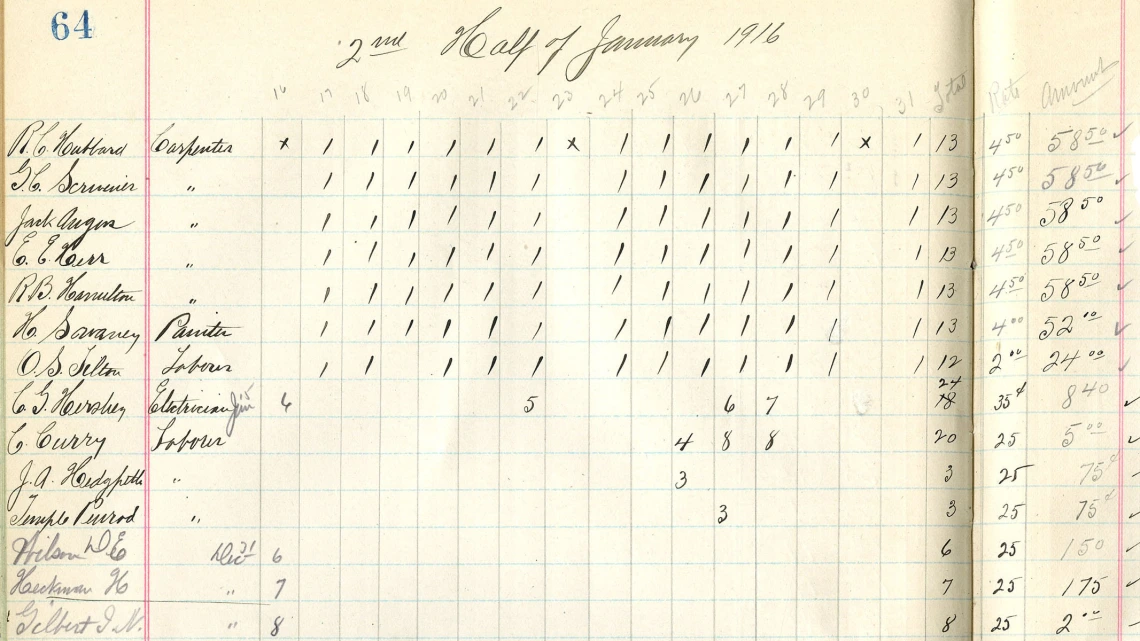 64
2nd Half of January 1916
16 17 18 19 20 21 22 23 24 25 26 27 28 29 30 31 Total Rate Amount
R. C. Hubbard Carpenter x / / / / / / x / / / / / / x / 13 4 50 58 50 ✓
G. C. Scrivener " / / / / / / / / / / / / / 13 4 50 58 50 ✓
Jack Angus " / / / / / / / / / / / / / 13 4 50 58 50 ✓
E. E. Kerr " / / / / / / / / / / / / / 13 4 50 58 50 ✓
R. B. Hamilton " / / / / / / / / / / / / / 13 4 50 58 50 ✓
H. Swaney Painter / / / / / / / / / / / / / 13 4 00 52 00 ✓
O. S. Tilton Laborer / / / / / / / / / / / / 12 2 00 24 00 ✓
C. G. Hershey Electrician 15 6 5 6 7 24 18 35¢ 8 40 ✓
C. Curry Laborer 4 8 8 20 25 5 00 ✓
J. A. Hedgpeth " 3 3 25 75¢
Temple Penrod " 3 3 25 75¢ ✓
Wilson D E Dec 31 6 6 25 1 50 ✓
Heckman H " 7 7 25 1 75
Gilbert I. N. " 8 8 25 2 00 ✓